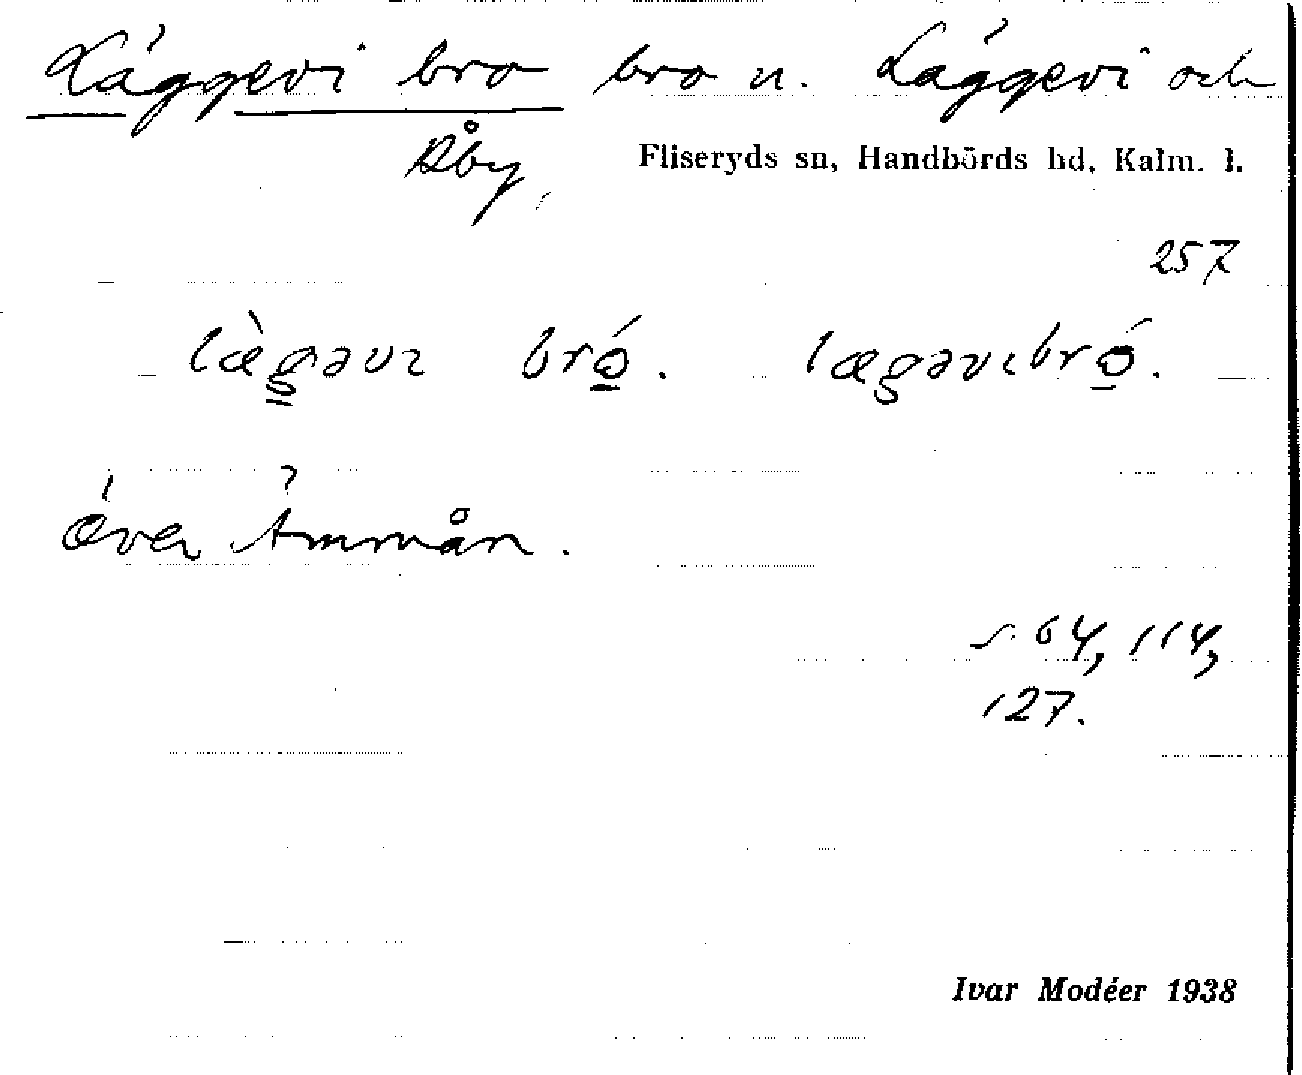 Läggevi bro bro n. Läggevi och
Åby,
Fliseryds sn, Handbörds hd, Kalm. l.
257
læ̀gəvɪ bró. lægəvɪbró.
över Ämmån.
s. 64, 114,
127.
Ivar Modéer 1938